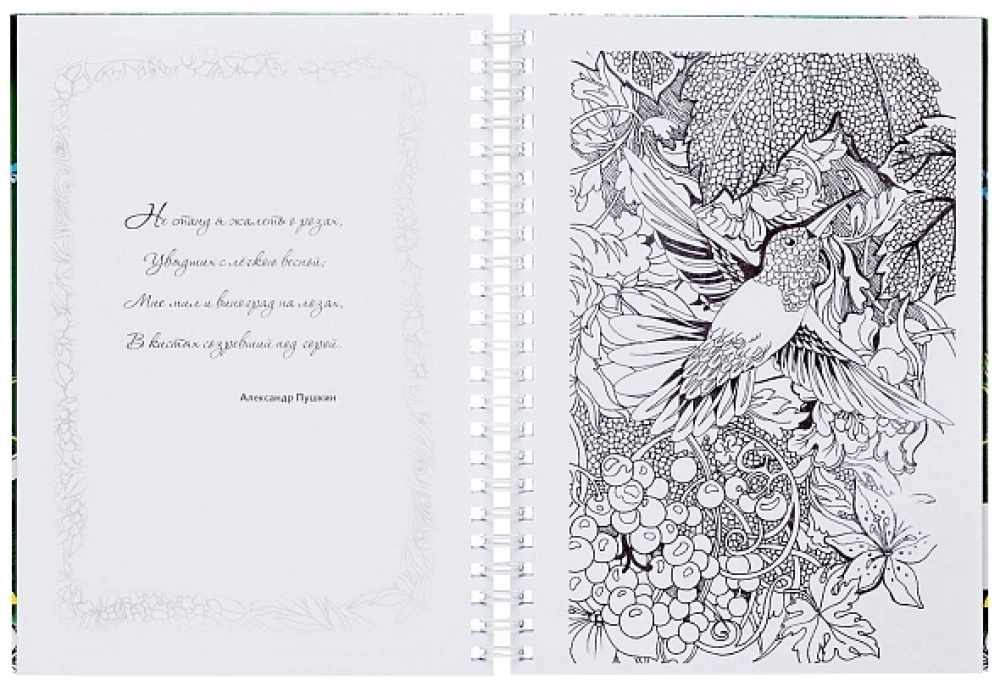 Не стану я жалеть о розах,
Увядших с лёгкою весной;
Мне мил и виноград на лозах,
В кистях созревший под горой.
Александр Пушкин